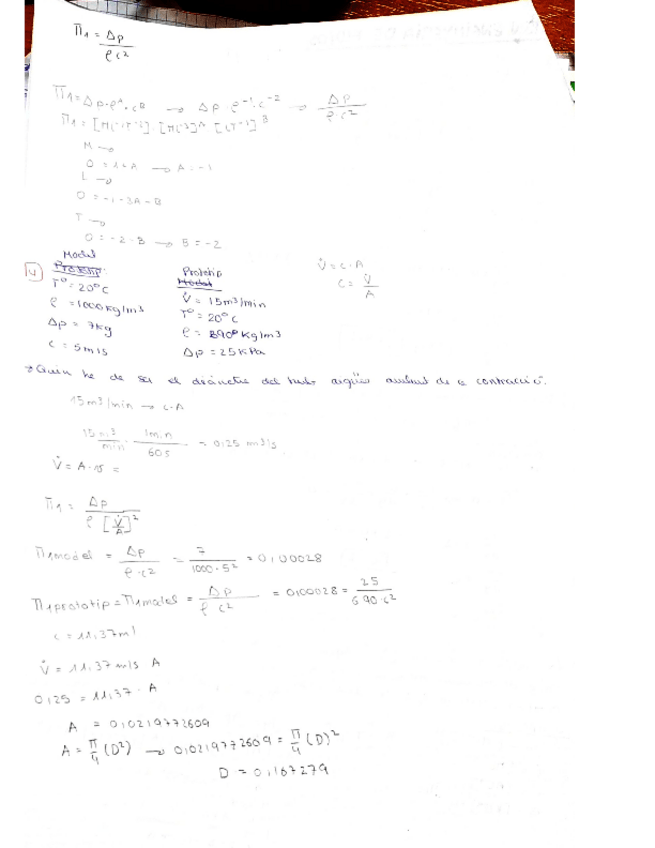 Π1 = Δp / ρc²
Π1 = Δp · ρᴬ · cᴮ → Δp · ρ⁻¹ · c⁻² → Δp / ρ·c²
Π1 = [ML⁻¹T⁻²] · [ML⁻³]ᴬ [LT⁻¹]ᴮ
M →
0 = 1+A → A = -1
L →
0 = -1-3A+B
T →
0 = -2-B → B = -2
14
Model
Prototip
Tº = 20ºC
ρ = 1000 kg/m3
Δp = 7kg
c = 5m/s
Prototip
Model
V̇ = 15m³/min
Tº = 20ºC
ρ = 690 kg/m3
Δp = 25 kPa
V̇ = c · A
c = V̇ / A
Quin ha de ser el diàmetre del tub aigües avall de la contracció.
15m3/min → c·A
15m³/min · 1min/60s = 0,25 m3/s
V̇ = A · 15 =
Π1 = Δp / ρ [V̇/A]²
Π1model = Δp / ρ·c² = 7 / 1000·5² = 0,00028
Π1prototip = Π1model = Δp / ρ c² = 0,00028 = 25 / 690·c²
c = 11,37m/
V̇ = 11,37 m/s A
0,25 = 11,37 · A
A = 0,0219772609
A = π/4 (D²) → 0,0219772609 = π/4 (D)²
D = 0,167279